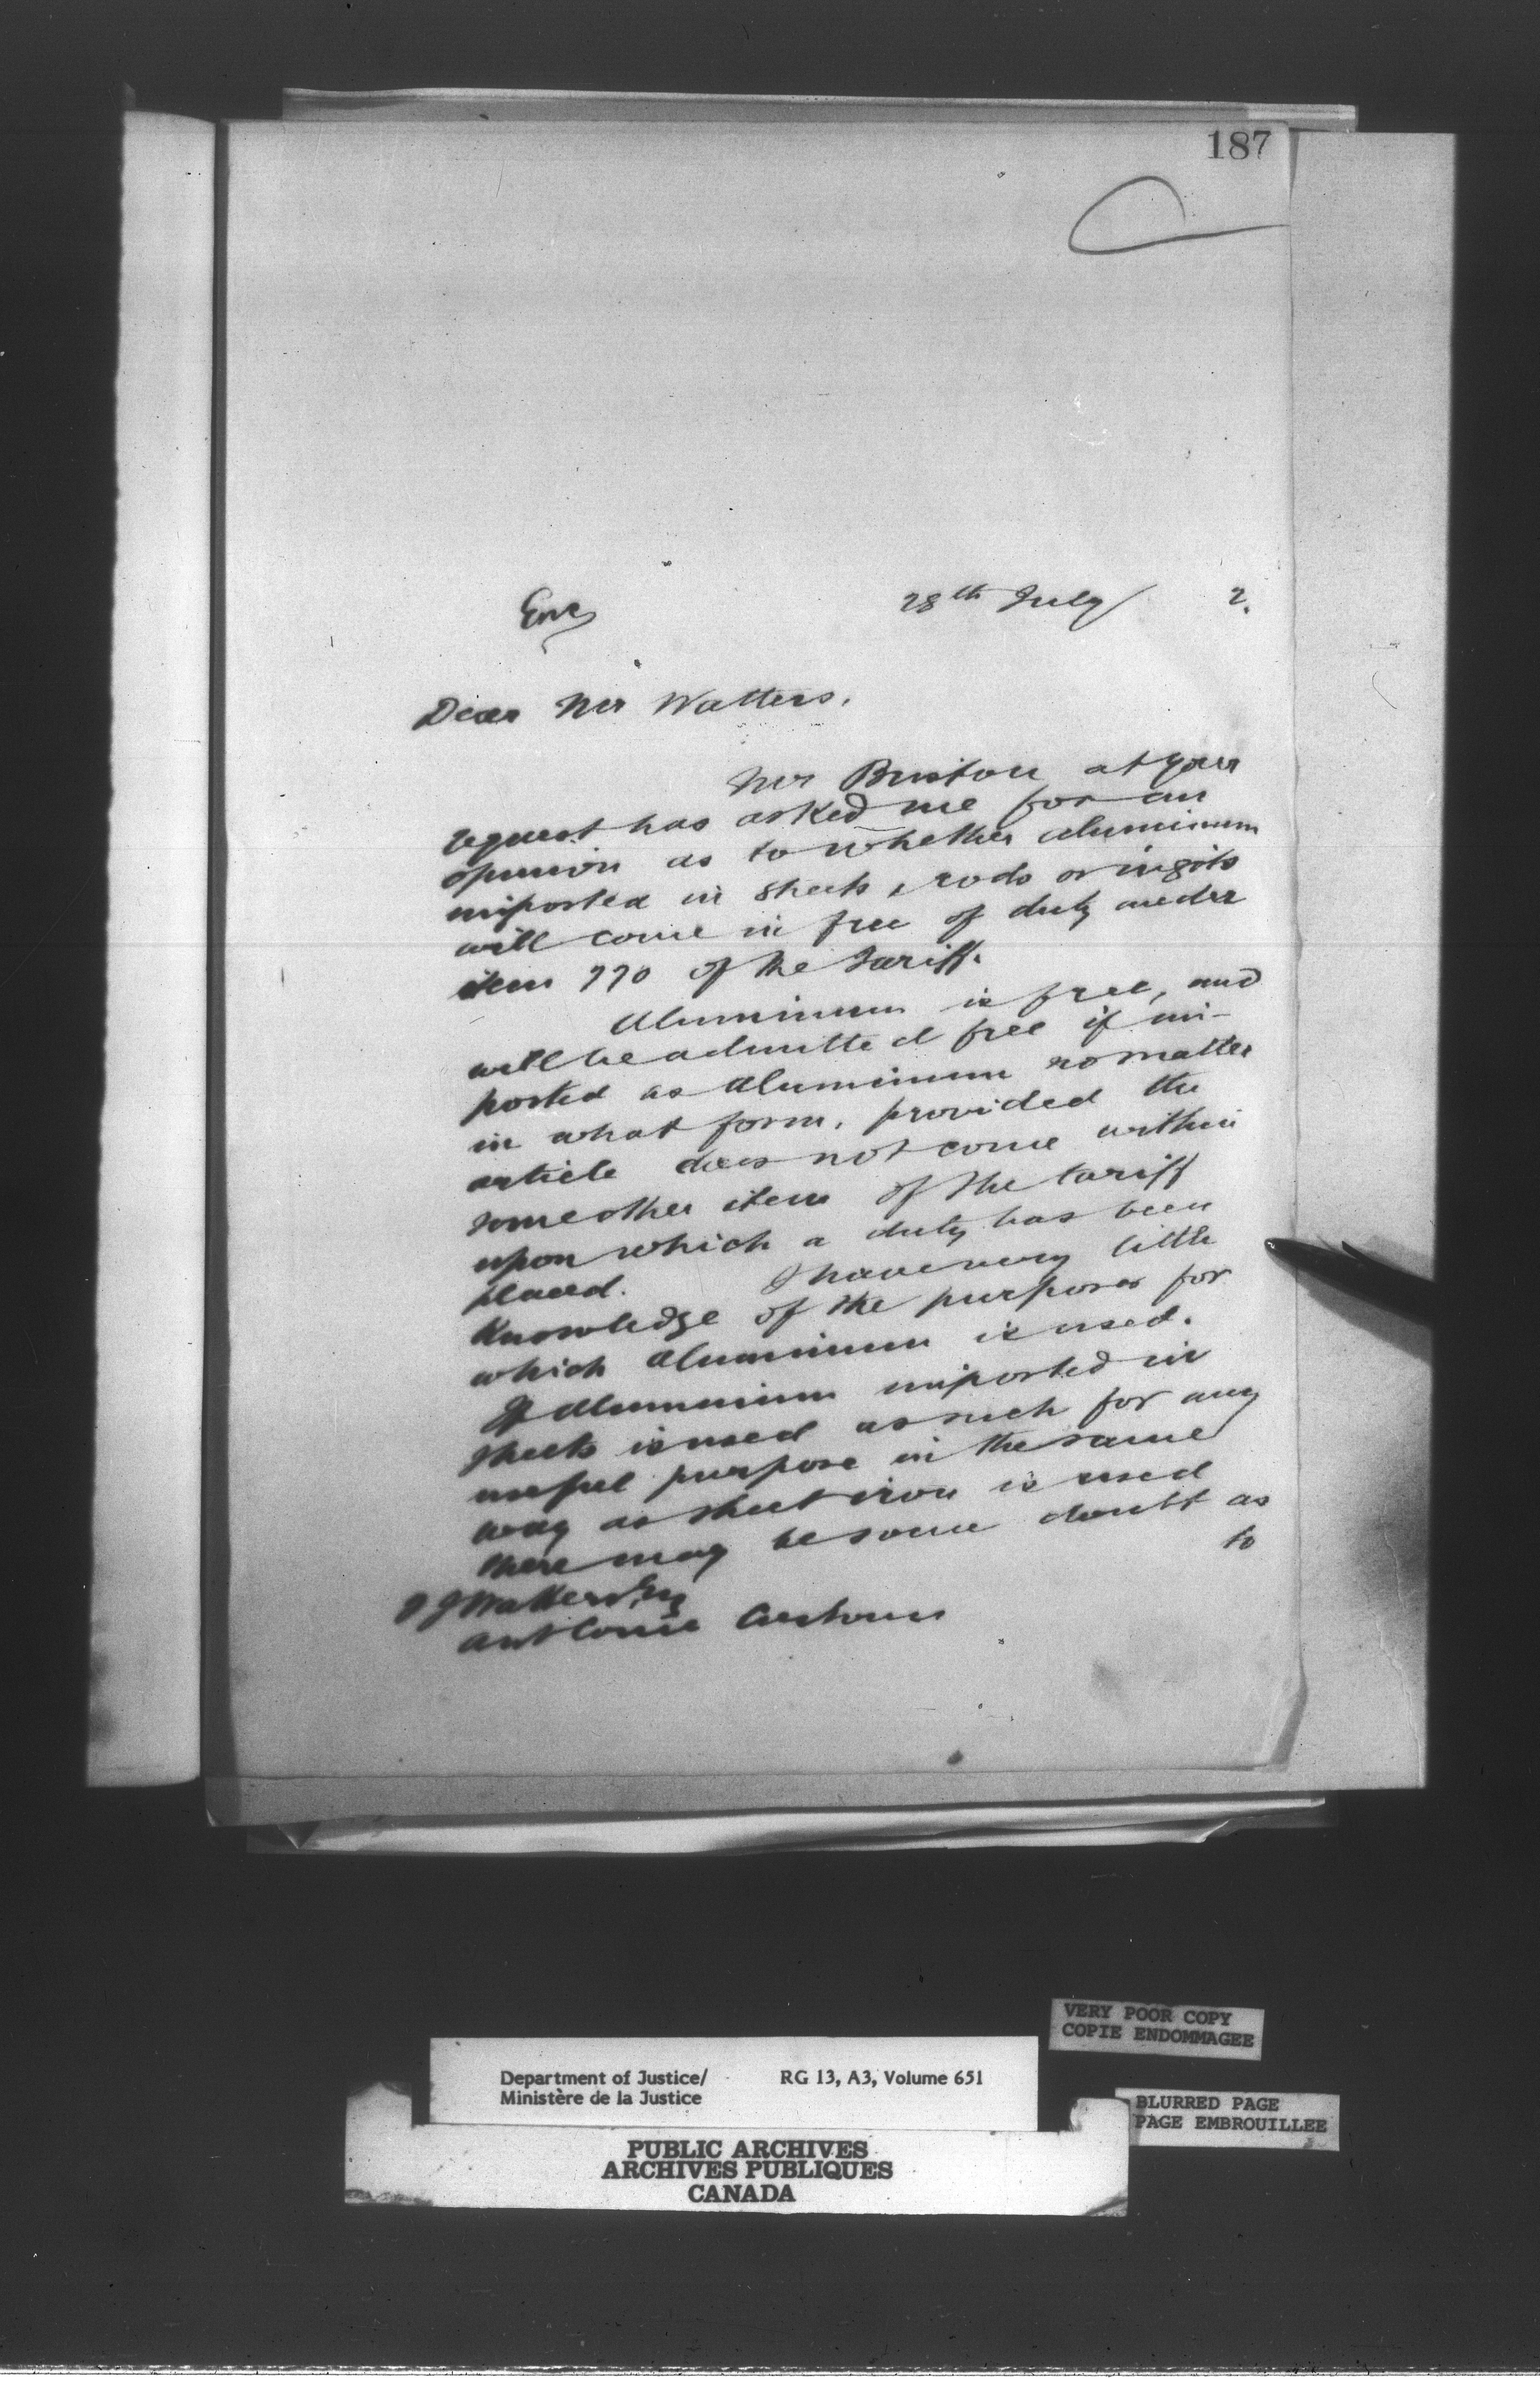 187
28th July 2.
Dear Mr Watters.
Mr at your
request has asked me for an
opinion as to whether aluminum
imported in sheets, rods or ingots
will come in free of duty under
item 770 of the Tariff.
Aluminum is free, and
will be admitted free if im-
ported as Aluminum no matter
in what form, provided the
article does not come within
some other item of the tariff
upon which a duty has been
placed. I have very little
Knowledge of the purposes for
which Aluminum is used.
If Aluminum imported in
sheets is used as such for any
useful purpose in the same
way as sheet iron is used
there may be some doubt as
to
Watters Esq
Customs
VERY POOR COPY
COPIE ENDOMMAGEE
Department of Justice/ RG 13, A3, Volume 651
Ministère de la Justice
BLURRED PAGE
PAGE EMBROUILLEE
PUBLIC ARCHIVES
ARCHIVES PUBLIQUES
CANADA